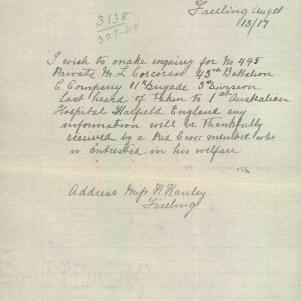 Freeling Augst
13/17
3138
327-40
I wish to make enquiry for No 445
Private M. L Corcoran 43rd Battalion
C Company 11th Brigade 3rd Division
Last heard of taken to 1st Australian
Hospital Hatfield England any
information will be thankfully
received by a Red Cross member who
is entrested in his welfare
Address Miss H Hanley
Freeling